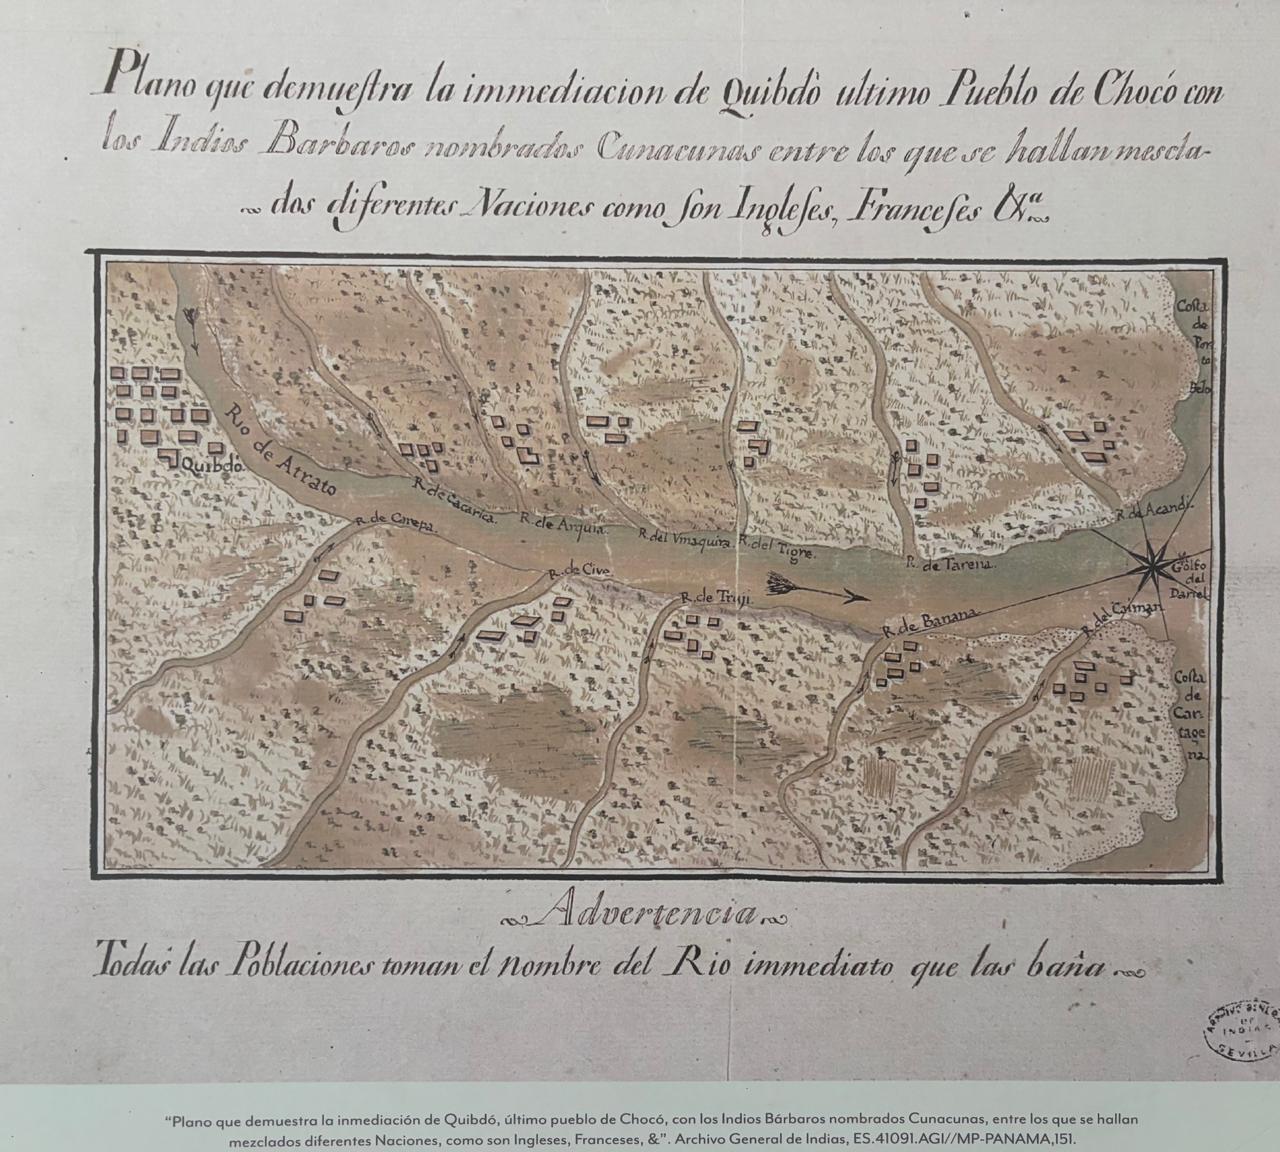 Plano que demueſtra la immediacion de Quibdò ultimo Pueblo de Chocó con
los Indios Barbaros nombrados Cunacunas entre los que se hallan mescla-
dos diferentes Naciones como ſon Ingleſes, Franceſes &ª
Costa
de
Por
to
Belo
Quibdò
Rio de Atrato
R. de Cacarica.
R. de Arquia.
R. del Vnaquira.
R. del Tigre.
R. de Tarena.
R. de Acandi.
R. de Carepa.
R. de Civo
R. de Truji.
R. de Banana.
R. del Caiman.
Golfo
del
Dariel
Costa
de
Car
tage
na
Advertencia
Todas las Poblaciones toman el nombre del Rio immediato que las baña
ARCHIVO GENERAL
DE
INDIAS
SEVILLA
“Plano que demuestra la inmediación de Quibdó, último pueblo de Chocó, con los Indios Bárbaros nombrados Cunacunas, entre los que se hallan
mezclados diferentes Naciones, como son Ingleses, Franceses, &”. Archivo General de Indias, ES.41091.AGI//MP-PANAMA,151.